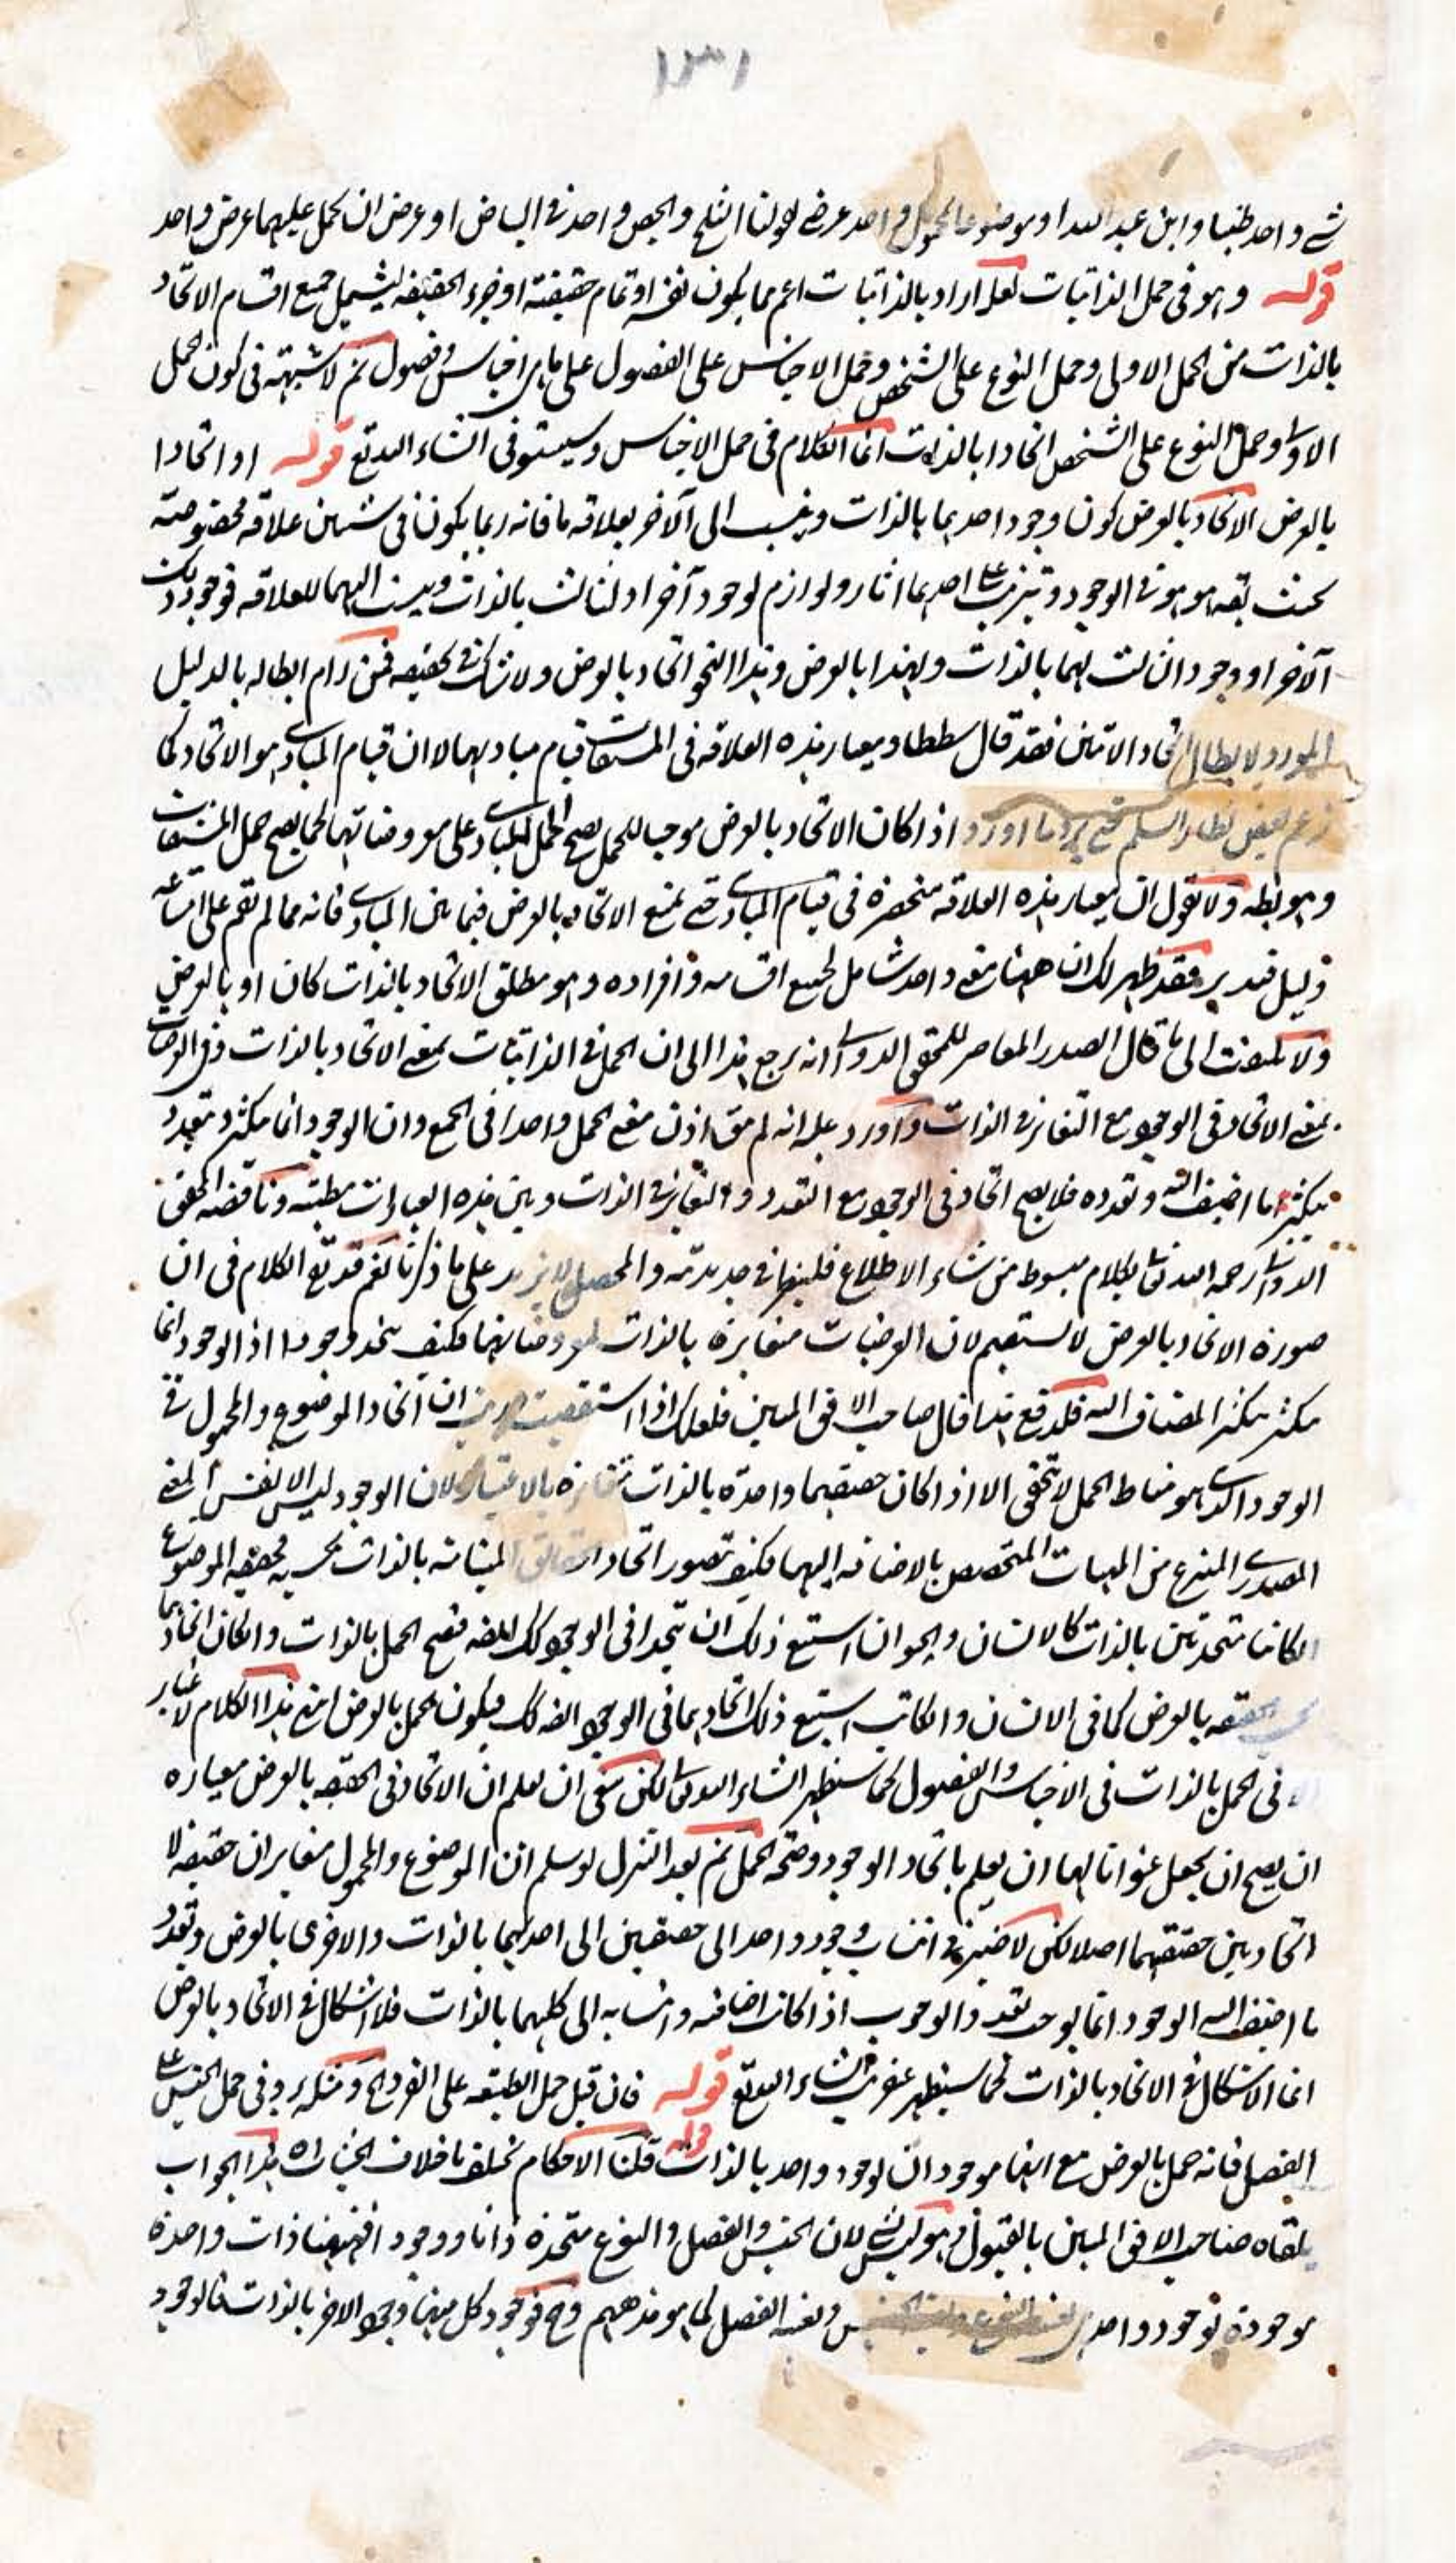 ١٣١
شے واحد طبیبا وابن عبد الله او موضوعا لمحمول واحد عرضے كقولنا الثلج والجص واحد فى البياض او عرض ان يحمل عليهما عرض واحد
قوله وهو فى حمل الذاتيات لعله اراد بالذاتيات اعم مما يكون نفسه او تمام حقيقته او جزء الحقيقة ليشمل جميع اقسام الاتحاد
بالذات من الحمل الاولى وحمل النوع على الشخص وحمل الاجناس على الفصول على ما هى اجناس وفصول ثم لا شبهة فى كون الحمل
الاولى وحمل النوع على الشخص اتحادا بالذات انما الكلام فى حمل الاجناس وسيستوفى انشاء الله تع قوله او اتحادا
بالعرض الاتحاد بالعرض كون وجود احدهما بالذات وينسب الى الآخر بعلاقة ما فانه ربما يكون فى شيئين علاقة مخصوصة
بحيث هو هو فى الوجود وتترتب على احدهما اثار ولوازم لوجود آخر او لثالث بالذات وينسب اليهما للعلاقة فوجود ذلك
الآخر او وجود الثالث لهما بالذات ولهذا بالعرض وهذا النحو اتحاد بالعرض ولا شك فى تحققه فمن رام ابطاله بالدليل
المورد لابطال اتحاد الاثنين فقد قال شططا ومعيار هذه العلاقة فى المشتقات قيام مباديها لا ان قيام المبادى هو الاتحاد كما
زعم بعض نظار السلم حتى يرد ما اورد اذا كان الاتحاد بالعرض موجبا للحمل يصح الحمل للمبادى على معروضاتها كما يصح حمل المشتقات
وهو بط ولا نقول ان معيار هذه العلاقة منحصرة فى قيام المبادى حتى يمنع الاتحاد بالعرض فيما بين المبادى فانه مما لم تقم على امتناعه
دليل فتدبر فقد ظهر لك ان ههنا معنے واحد شامل لجميع اقسامه وافراده وهو مطلق الاتحاد بالذات كان او بالعرض
ولا تلتفت الى ما قال الصدر المعاصر للمحقق الدوانى انه يرجع هذا الى ان الحمل فى الذاتيات بمعنے الاتحاد بالذات وفى العرضيات
بمعنے الاتحاد فى الوجود مع التغاير فى الذات واورد عليه انه لم يبق اذن معنے الحمل واحدا فى الجمع وان الوجود انما يتكثر ويتعدد
بتكثر ما اضيف اليه وتعدده فلا يصح اتحاد فى الوجود مع التعدد والتغاير فى الذات وبين هذه العبارات وناقضه المحقق
الدوانى رحمه الله تعالى بكلام مبسوط من شاء الاطلاع فلينظر فى جديدته والمحصل لا يزيد على ما ذكرنا نعم قد بقى الكلام فى ان
صورة الاتحاد بالعرض لا يستقيم لان العرضيات متغايرة بالذات لمعروضاتها فكيف يتحد وجودا اذ الوجود انما
يتكثر بتكثر المضاف اليه فلدفع هذا قال صاحب الافق المبين فلعلك اذا استقصيت دريت ان اتحاد الموضوع والمحمول فى
الوجود الذى هو مناط الحمل لا يتحقق الا اذا كان حقيقتهما واحدة بالذات متغايرة بالاعتبار لان الوجود ليس الا نفس المعنے
المصدرى المنتزع من الماهيات المتخصص بالاضافة اليها فكيف يتصور اتحاد الحقائق المتباينة بالذات بحسبه فحقيقة الموضوع
ان كانتا متحدتين بالذات كالانسان والحيوان استتبع ذلك ان تتحدا فى الوجود كك ايضا فيصح الحمل بالذات وان كان اتحادهما
بحسب الحقيقة بالعرض كما فى الانسان والكاتب استتبع ذلك اتحادهما فى الوجود ايضا كك فيكون الحمل بالعرض انتهى هذا الكلام لا غبار
الا فى الحمل بالذات فى الاجناس والفصول كما سيظهر انشاء الله تعالى لكن بقى ان يعلم ان الاتحاد فى الحقيقة بالعرض معياره
ان يصح ان يجعل عنوانا لها ان يعلم باتحاد الوجود وصحة الحمل ثم بعد التنزل لو سلم ان الموضوع والمحمول متغايران حقيقة لا
اتحاد بين حقيقتهما اصلا لكن لا ضير فى انتساب وجود واحد الى حقيقتين الى احدهما بالذات والاخرى بالعرض وتعدد
ما اضيف اليه الوجود انما يوجب تعدد الوجود اذا كانت اضافته وانتسابه الى كليهما بالذات فلا اشكال فى الاتحاد بالعرض
انما الاشكال فى الاتحاد بالذات كما سيظهر عنقريب انشاء الله تع قوله فان قيل حمل الطبيعة على الفرد الخ ومثله يرد فى حمل الجنس على
الفصل فانه حمل بالعرض مع انهما موجودان لوجود واحد بالذات قوله قلنا الاحكام تختلف باختلاف الحيثيات اه هذا الجواب
تلقاه صاحب الافق المبين بالقبول وهو ليس بشے لان الجنس والفصل والنوع متحدة ذاتا ووجودا فههنا ذات واحدة
موجودة بوجود واحد هى نفس النوع ونفس الجنس ونفس الفصل كما هو مذهبهم وح فوجود كل منها وجود الاخر بالذات فالوجود